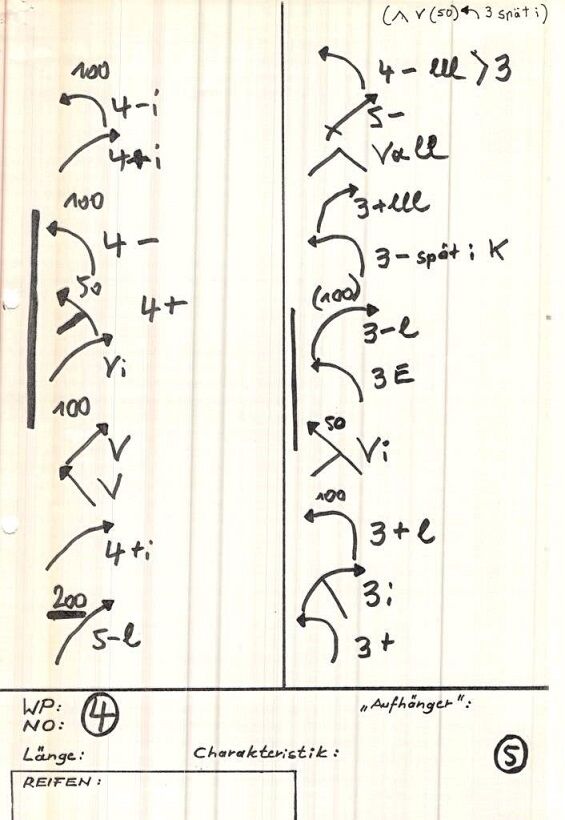 (∧ V (50) ↰ 3 spät i)
100
4 - i
4+i
100
4 -
50
4+
Vi
100
V
V
4+i
200
5-l
4 - lll > 3
5-
V all
3+lll
3- spät i K
(100)
3-l
3 E
50
Vi
100
3+l
3i
3+
WP: 4
NO:
„Aufhänger":
Länge:
Charakteristik:
5
REIFEN: